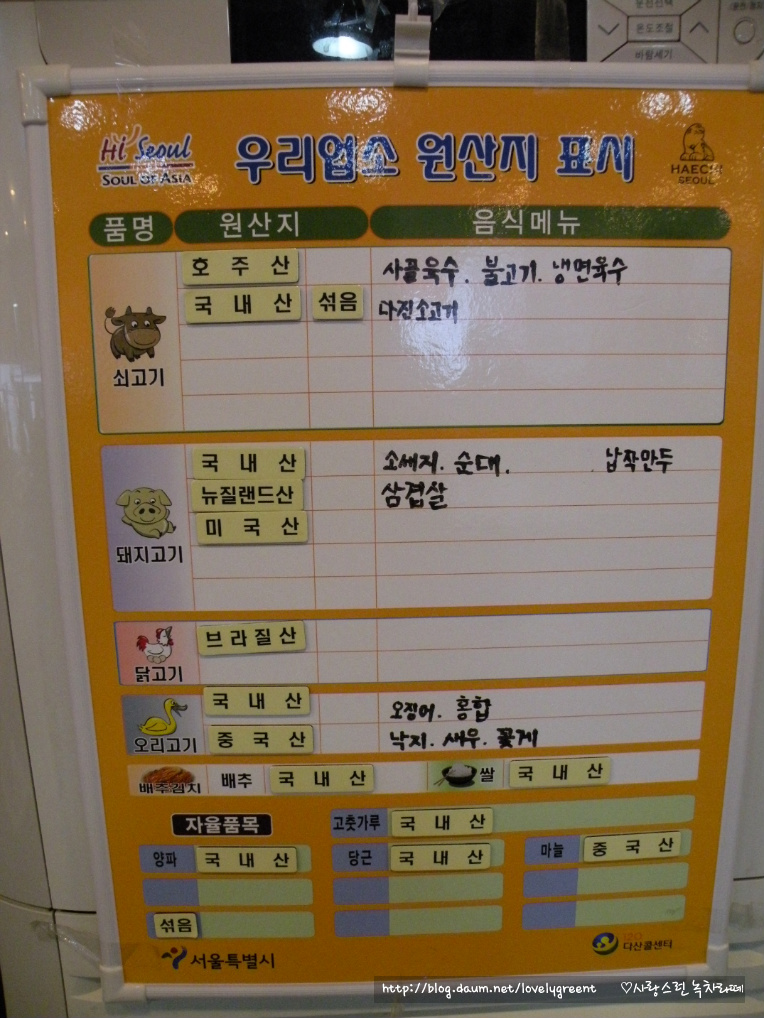 운전선택
온도조절
바람세기
Hi Seoul
SOUL OF ASIA
우리업소 원산지 표시
HAECHI
SEOUL
품명 원산지 음식메뉴
호주산 사골육수. 불고기. 냉면육수
국내산 섞음 다진소고기
쇠고기
국내산 소세지. 순대. 납작만두
뉴질랜드산 삼겹살
미국산
돼지고기
브라질산
닭고기
국내산 오징어. 홍합
오리고기 중국산 낙지. 새우. 꽃게
배추김치 배추 국내산 쌀 국내산
자율품목 고춧가루 국내산
양파 국내산 당근 국내산 마늘 중국산
섞음
서울특별시
120
다산콜센터
http://blog.daum.net/lovelygreent ♡사랑스런 녹차라떼